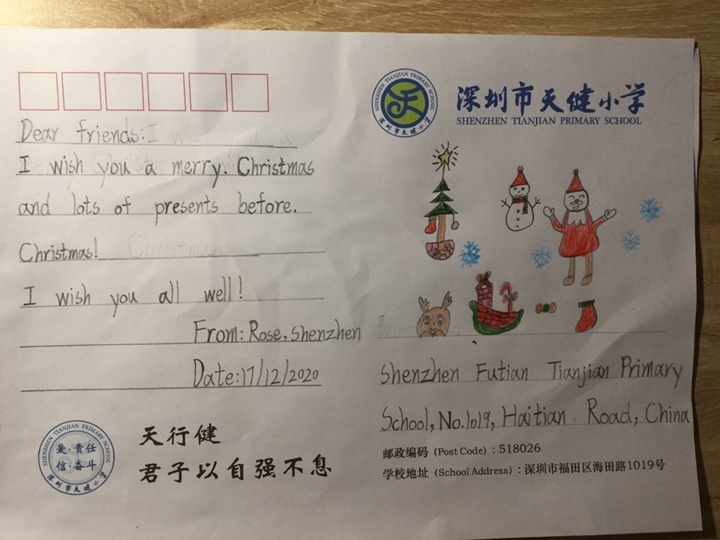 Dear friends:
I wish you a merry. Christmas
and lots of presents before.
Christmas!
I wish you all well!
From: Rose, Shenzhen
Date:17/12/2020
SHENZHEN TIANJIAN PRIMARY SCHOOL
爱·责任
信·奋斗
深圳市天健小学
天行健
君子以自强不息
SHENZHEN TIANJIAN PRIMARY SCHOOL
深圳市天健小学
深圳市天健小学
SHENZHEN TIANJIAN PRIMARY SCHOOL
Shenzhen Futian Tianjian Primary
School, No.1019, Haitian Road, China
邮政编码 (Post Code) : 518026
学校地址 (School Address) : 深圳市福田区海田路1019号